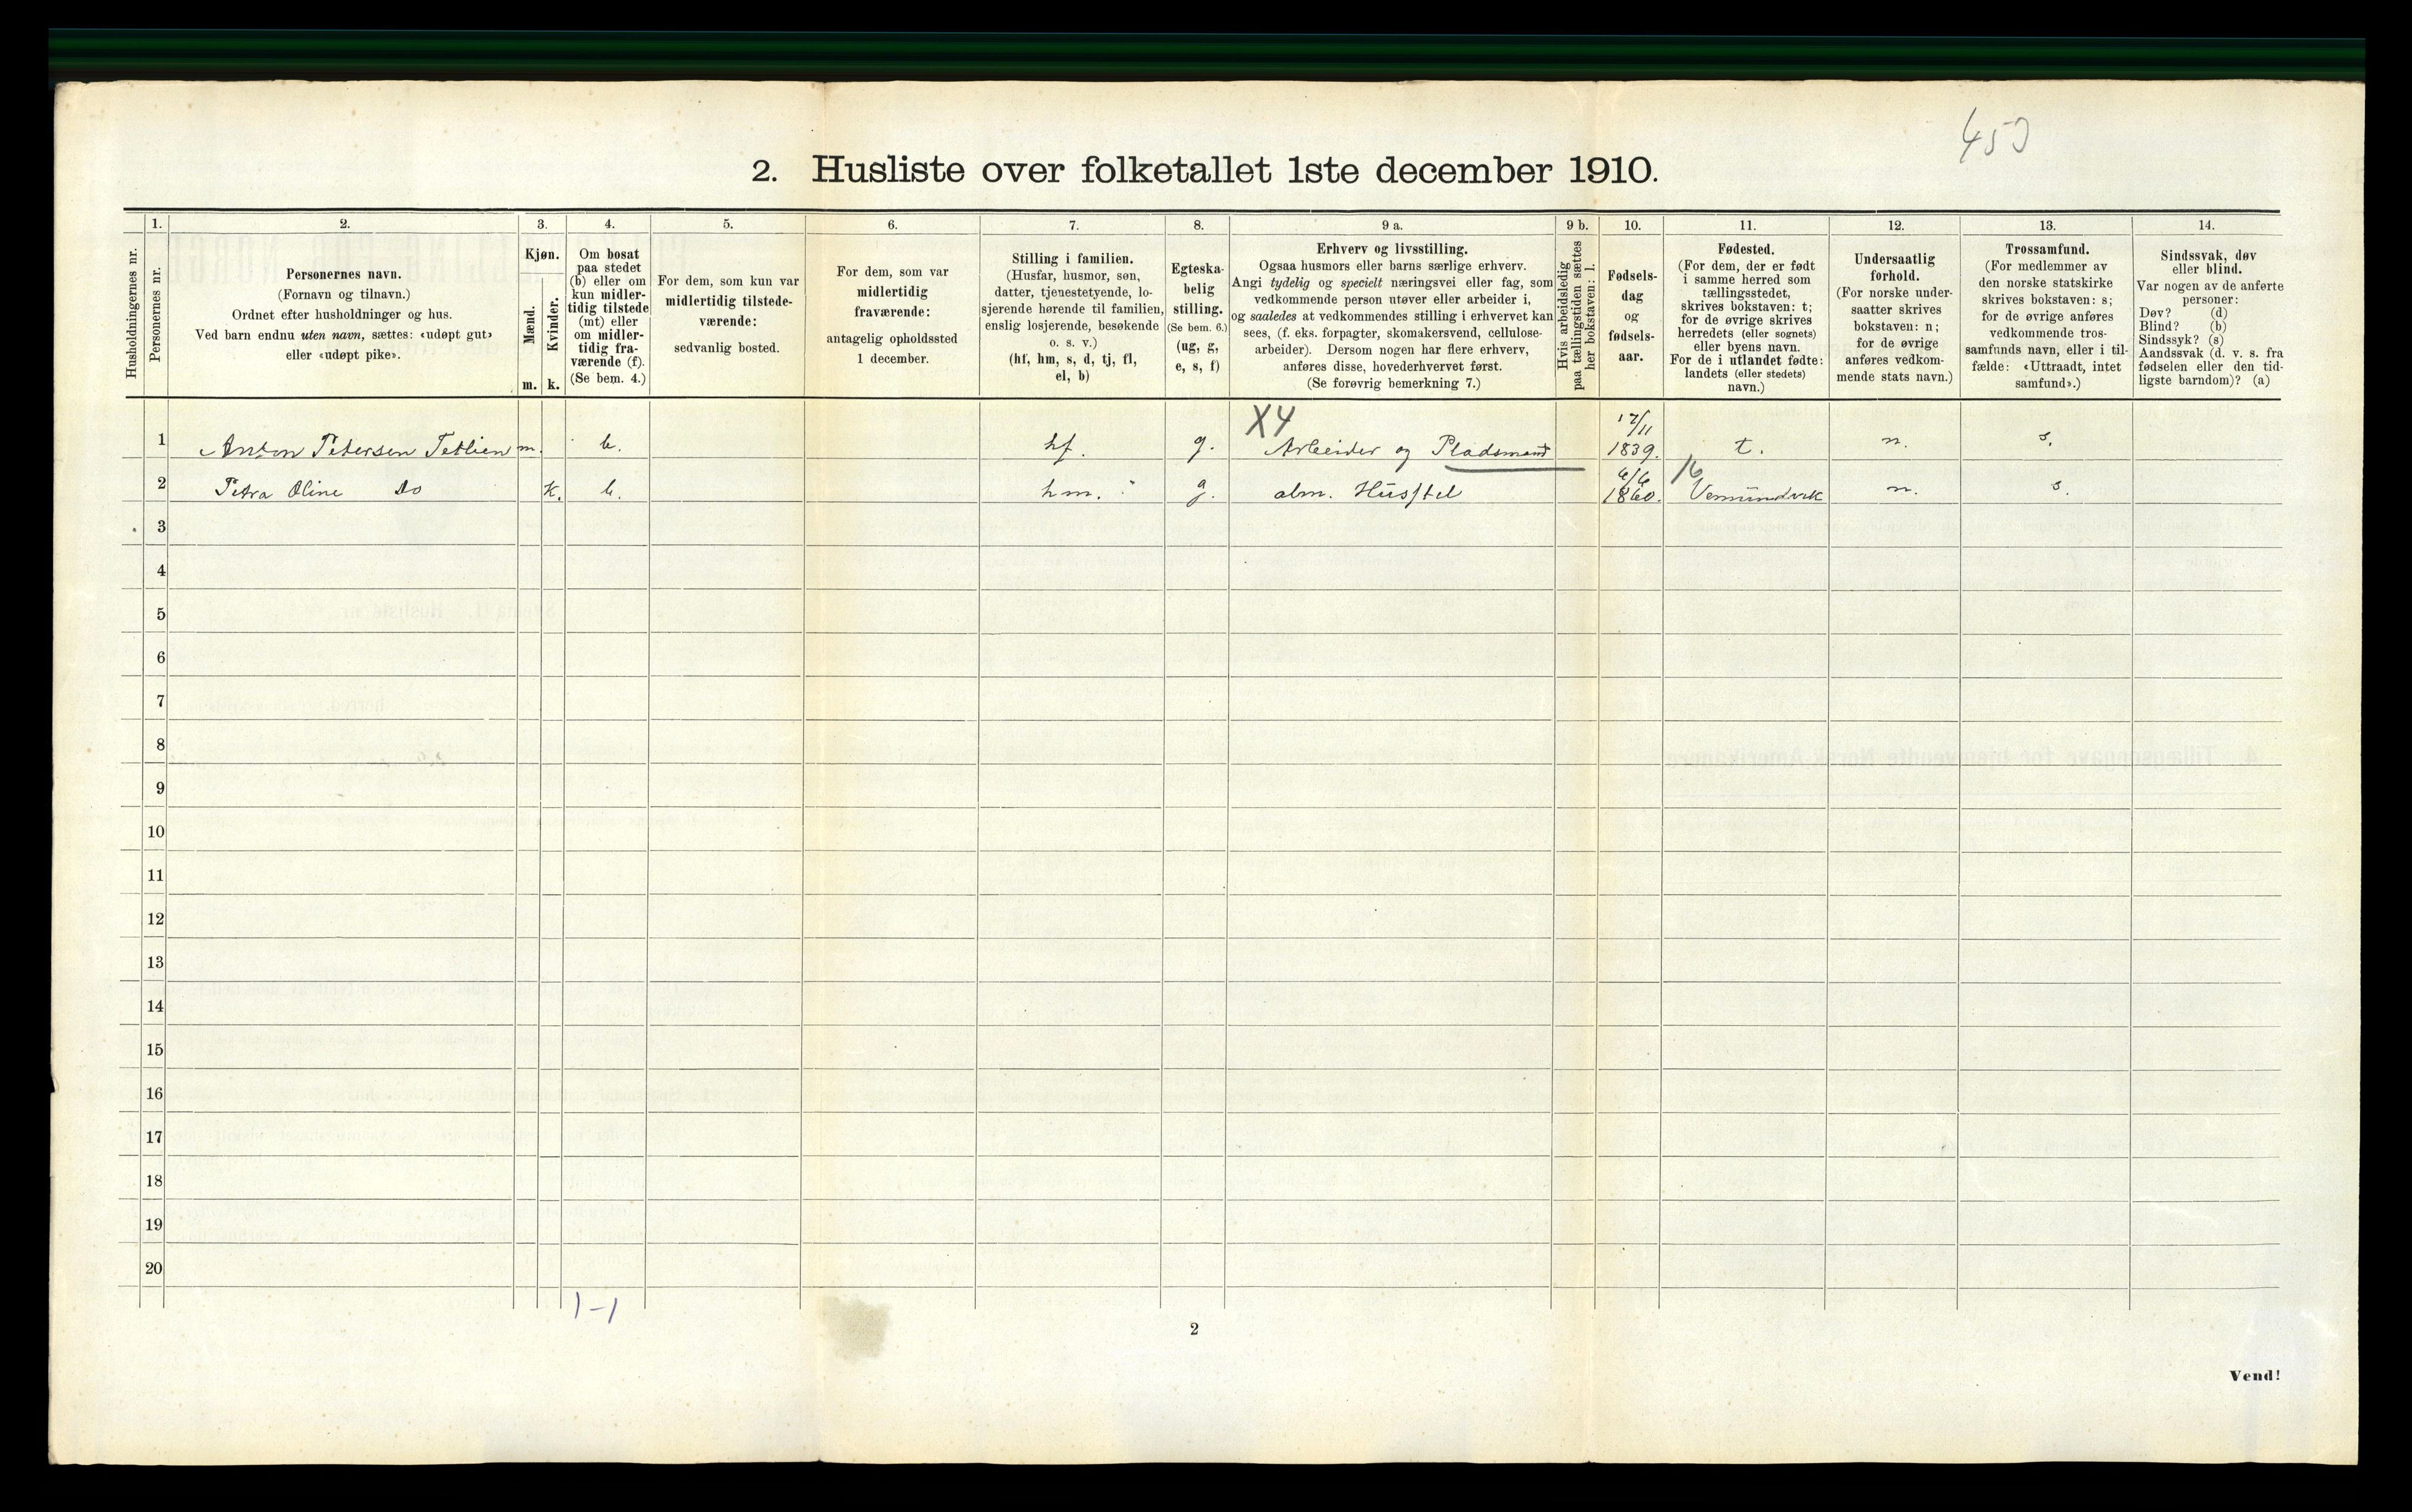 453
2. Husliste over folketallet 1ste december 1910.
Husholdningernes nr.
1.
Personernes nr.
2.
Personernes navn.
(Fornavn og tilnavn.)
Ordnet efter husholdninger og hus.
Ved barn endnu uten navn, sættes: «udøpt gut»
eller «udøpt pike».
3.
Kjøn.
Mænd.
Kvinder.
m. k.
4.
Om bosat
paa stedet
(b) eller om
kun midler-
tidig tilstede
(mt) eller
om midler-
tidig fra-
værende (f).
(Se bem. 4.)
5.
For dem, som kun var
midlertidig tilstede-
værende:
sedvanlig bosted.
6.
For dem, som var
midlertidig
fraværende:
antagelig opholdssted
1 december.
7.
Stilling i familien.
(Husfar, husmor, søn,
datter, tjenestetyende, lo-
sjerende hørende til familien,
enslig losjerende, besøkende
o. s. v.)
(hf, hm, s, d, tj, fl,
el, b)
8.
Egteska-
belig
stilling.
(Se bem. 6.)
(ug, g,
e, s, f)
9 a.
Erhverv og livsstilling.
Ogsaa husmors eller barns særlige erhverv.
Angi tydelig og specielt næringsvei eller fag, som
vedkommende person utøver eller arbeider i,
og saaledes at vedkommendes stilling i erhvervet kan
sees, (f. eks. forpagter, skomakersvend, cellulose-
arbeider). Dersom nogen har flere erhverv,
anføres disse, hovederhvervet først.
(Se forøvrig bemerkning 7.)
9 b.
Hvis arbeidsledig
paa tællingstiden sættes
her bokstaven: l.
10.
Fødsels-
dag
og
fødsels-
aar.
11.
Fødested.
(For dem, der er født
i samme herred som
tællingsstedet,
skrives bokstaven: t;
for de øvrige skrives
herredets (eller sognets)
eller byens navn.
For de i utlandet fødte:
landets (eller stedets)
navn.)
12.
Undersaatlig
forhold.
(For norske under-
saatter skrives
bokstaven: n;
for de øvrige
anføres vedkom-
mende stats navn.)
13.
Trossamfund.
(For medlemmer av
den norske statskirke
skrives bokstaven: s;
for de øvrige anføres
vedkommende tros-
samfunds navn, eller i til-
fælde: «Uttraadt, intet
samfund».)
14.
Sindssvak, døv
eller blind.
Var nogen av de anførte
personer:
Døv? (d)
Blind? (b)
Sindssyk? (s)
Aandssvak (d. v. s. fra
fødselen eller den tid-
ligste barndom)? (a)
X4 17/11
1 Anton Petersen Tetlien m. b. hf. g. Arbeider og Pladsmand 1839. t. n. s.
6/6 16
2 Petra Oline do k. b. hm. g. alm. Husstel 1860. Vemundvik n. s.
3
4
5
6
7
8
9
10
11
12
13
14
15
16
17
18
19
20
1-1
2
Vend!